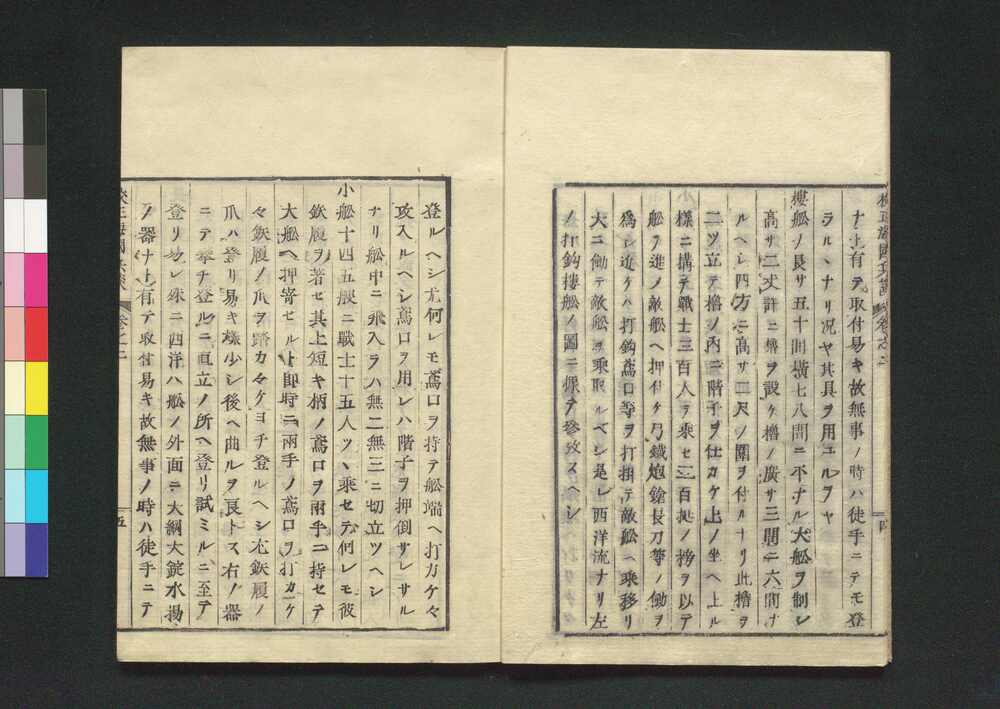 校正海國兵談 卷之二 四
ナト有テ取付易キ故無事ノ時ハ徒手ニテモ登
ラルヽナリ况ヤ其具ヲ用ユルヲヤ
樓舩ノ長サ五十間横七八間ニ不下ル大舩ヲ制シ
高サ二丈許ニ櫓ヲ設ケ櫓ノ廣サ三間ニ六間ナ
ルヘシ四方ニ高サ二尺ノ圍ヲ付ルナリ此櫓ヲ
二ツ立テ櫓ノ内ニ階子ヲ仕カケ上ノ坐ヘ上ル
樣ニ構テ戰士三百人ヲ乘セ三百挺ノ榜ヲ以テ
舩ヲ進メ敵舩ヘ押付ケ弓鐵炮鎗長刀等ノ働ヲ
爲シ近ケハ打鈎鳶口等ヲ打掛テ敵舩ヘ乘移リ
大ニ働テ敵舩ヲ乘取ルベシ是レ西洋流ナリ左
ノ打鈎樓舩ノ圖ニ據テ參攷スヘシ
登ルヘシ尤何レモ鳶口ヲ持テ舩端ヘ打カケ々
攻入ルヘシ鳶口ヲ用レハ階子ヲ押倒サレサル
ナリ舩中ニ飛入ラハ無二無三ニ切立ツヘシ
小舩十四五艘ニ戰士十五人ツヽ乘セテ何レモ彼
鉄履ヲ著セ其上短キ柄ノ鳶口ヲ兩手ニ持セテ
大舩ヘ押寄セルト即時ニ兩手ノ鳶口ヲ打カケ
々鉄履ノ爪ヲ踏カケ々ヨチ登ルヘシ尤鉄履ノ
爪ハ登リ易キ樣少シ後ヘ曲ルヲ良トス右ノ器
ニテ攀チ登ルニ直立ノ所ヘ登リ試ミルニ至テ
登リ易シ殊ニ西洋ハ舩ノ外面ニ大綱大錠水揚
ノ器ナト有テ取付易キ故無事ノ時ハ徒手ニテ
卷之二 五